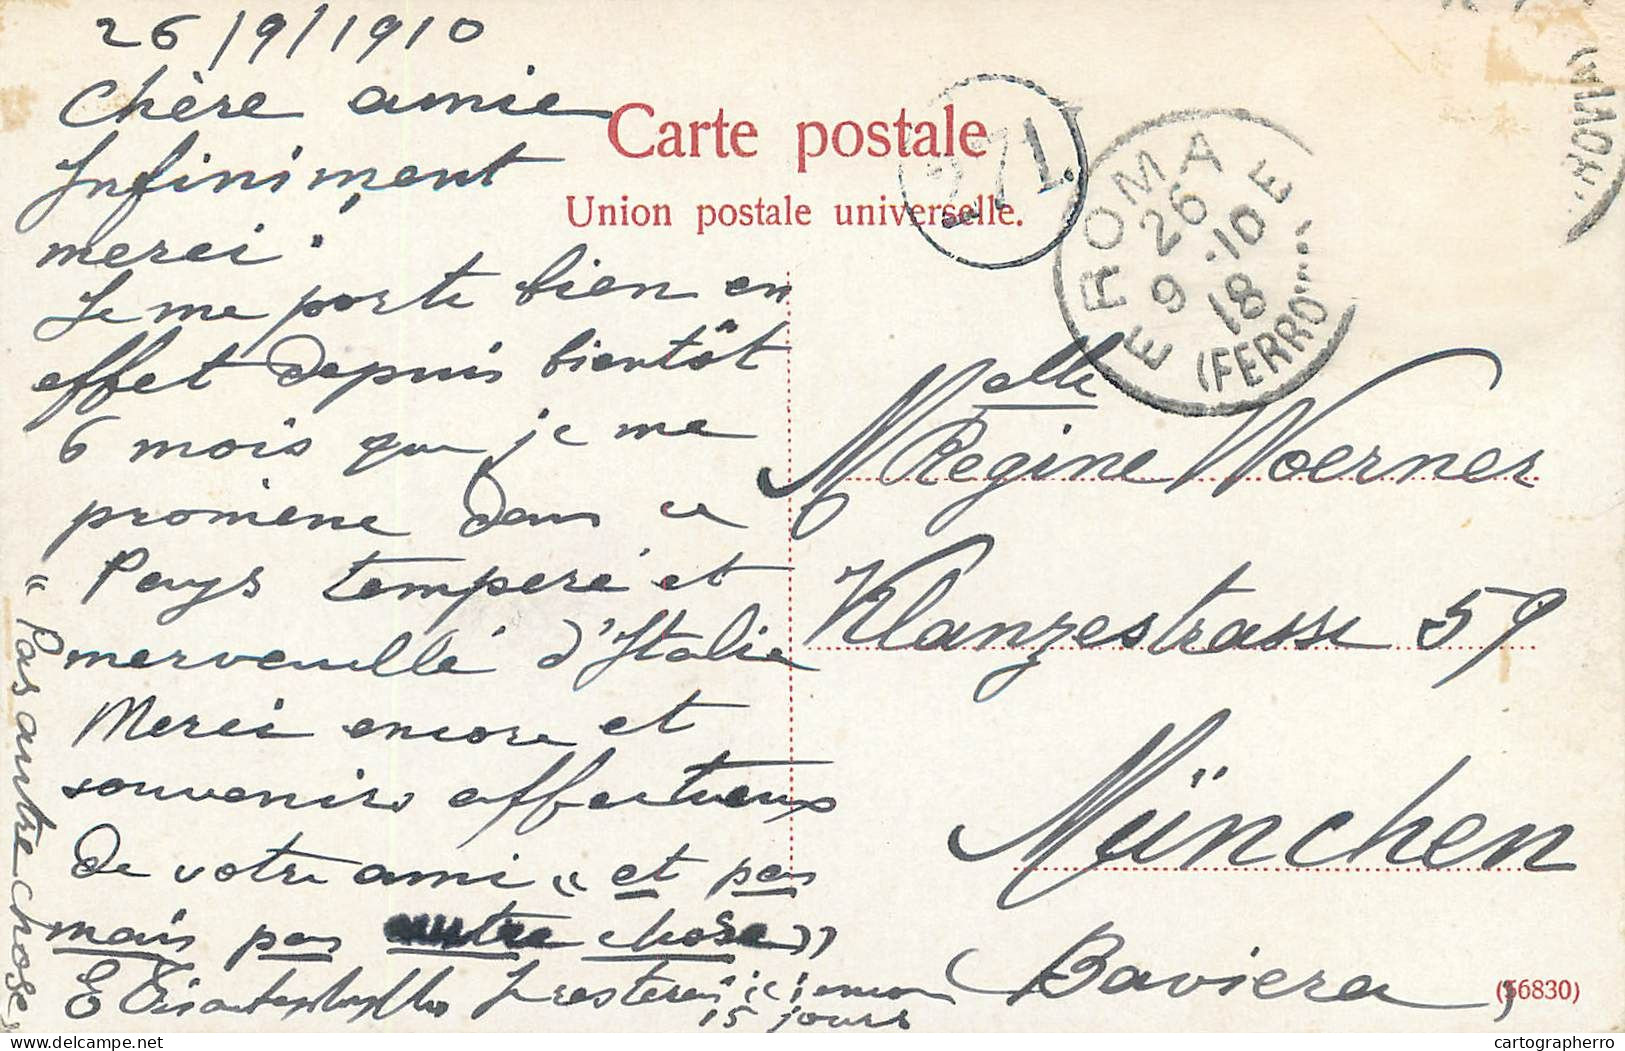 26/9/1910
Chère amie
Infiniment
merci.
Je me porte bien en
effet depuis bientôt
6 mois que je me
promène dans ce
Pays tempéré et
merveuillé d'Italie
Merci encore et
souvenirs affectueux
de votre ami « et pas
mais pas autre chose »
E
Je resterai ici encore
15 jours
« Pas autre chose »
Carte postale
Union postale universelle.
271.
ROMA
26
9.10
18
(FERRO
Melle
Regine Woerner
Klanzestrasse 59
München
Baviera
(56830)
cartographerro